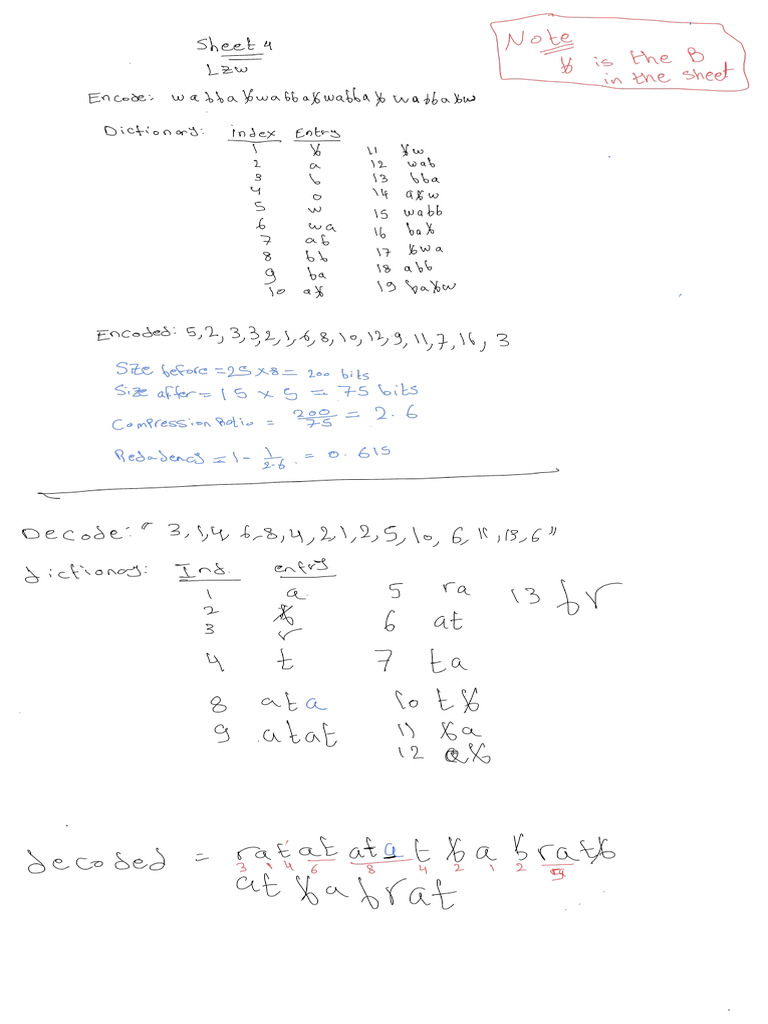 Sheet 4
LZW
Note
ƀ is the B
in the sheet
Encode: wabbaƀwabbaƀwabbaƀwabbaƀw
Dictionary: index Entry
1 ƀ 11 ƀw
2 a 12 wab
3 b 13 bba
4 o 14 aƀw
5 w 15 wabb
6 wa 16 baƀ
7 ab 17 ƀwa
8 bb 18 abb
9 ba 19 baƀw
10 aƀ
Encoded: 5,2,3,3,2,1,6,8,10,12,9,11,7,16,3
Size before = 25 x 8 = 200 bits
Size after = 15 x 5 = 75 bits
Compression Ratio = 200/75 = 2.6
Redadency = 1 - 1/2.6 = 0.615
Decode: " 3,1,4,6,8,4,2,1,2,5,10,6,11,13,6"
dictionary: Ind. entry
1 a 5 ra 13 ƀr
2 ƀ 6 at
3 r
4 t 7 ta
8 ata 10 tƀ
9 atat 11 ƀa
12 aƀ
decoded = rat at ata t ƀ a ƀ ra tƀ
3 1 4 6 8 4 2 1 2 5
at ƀa ƀrat